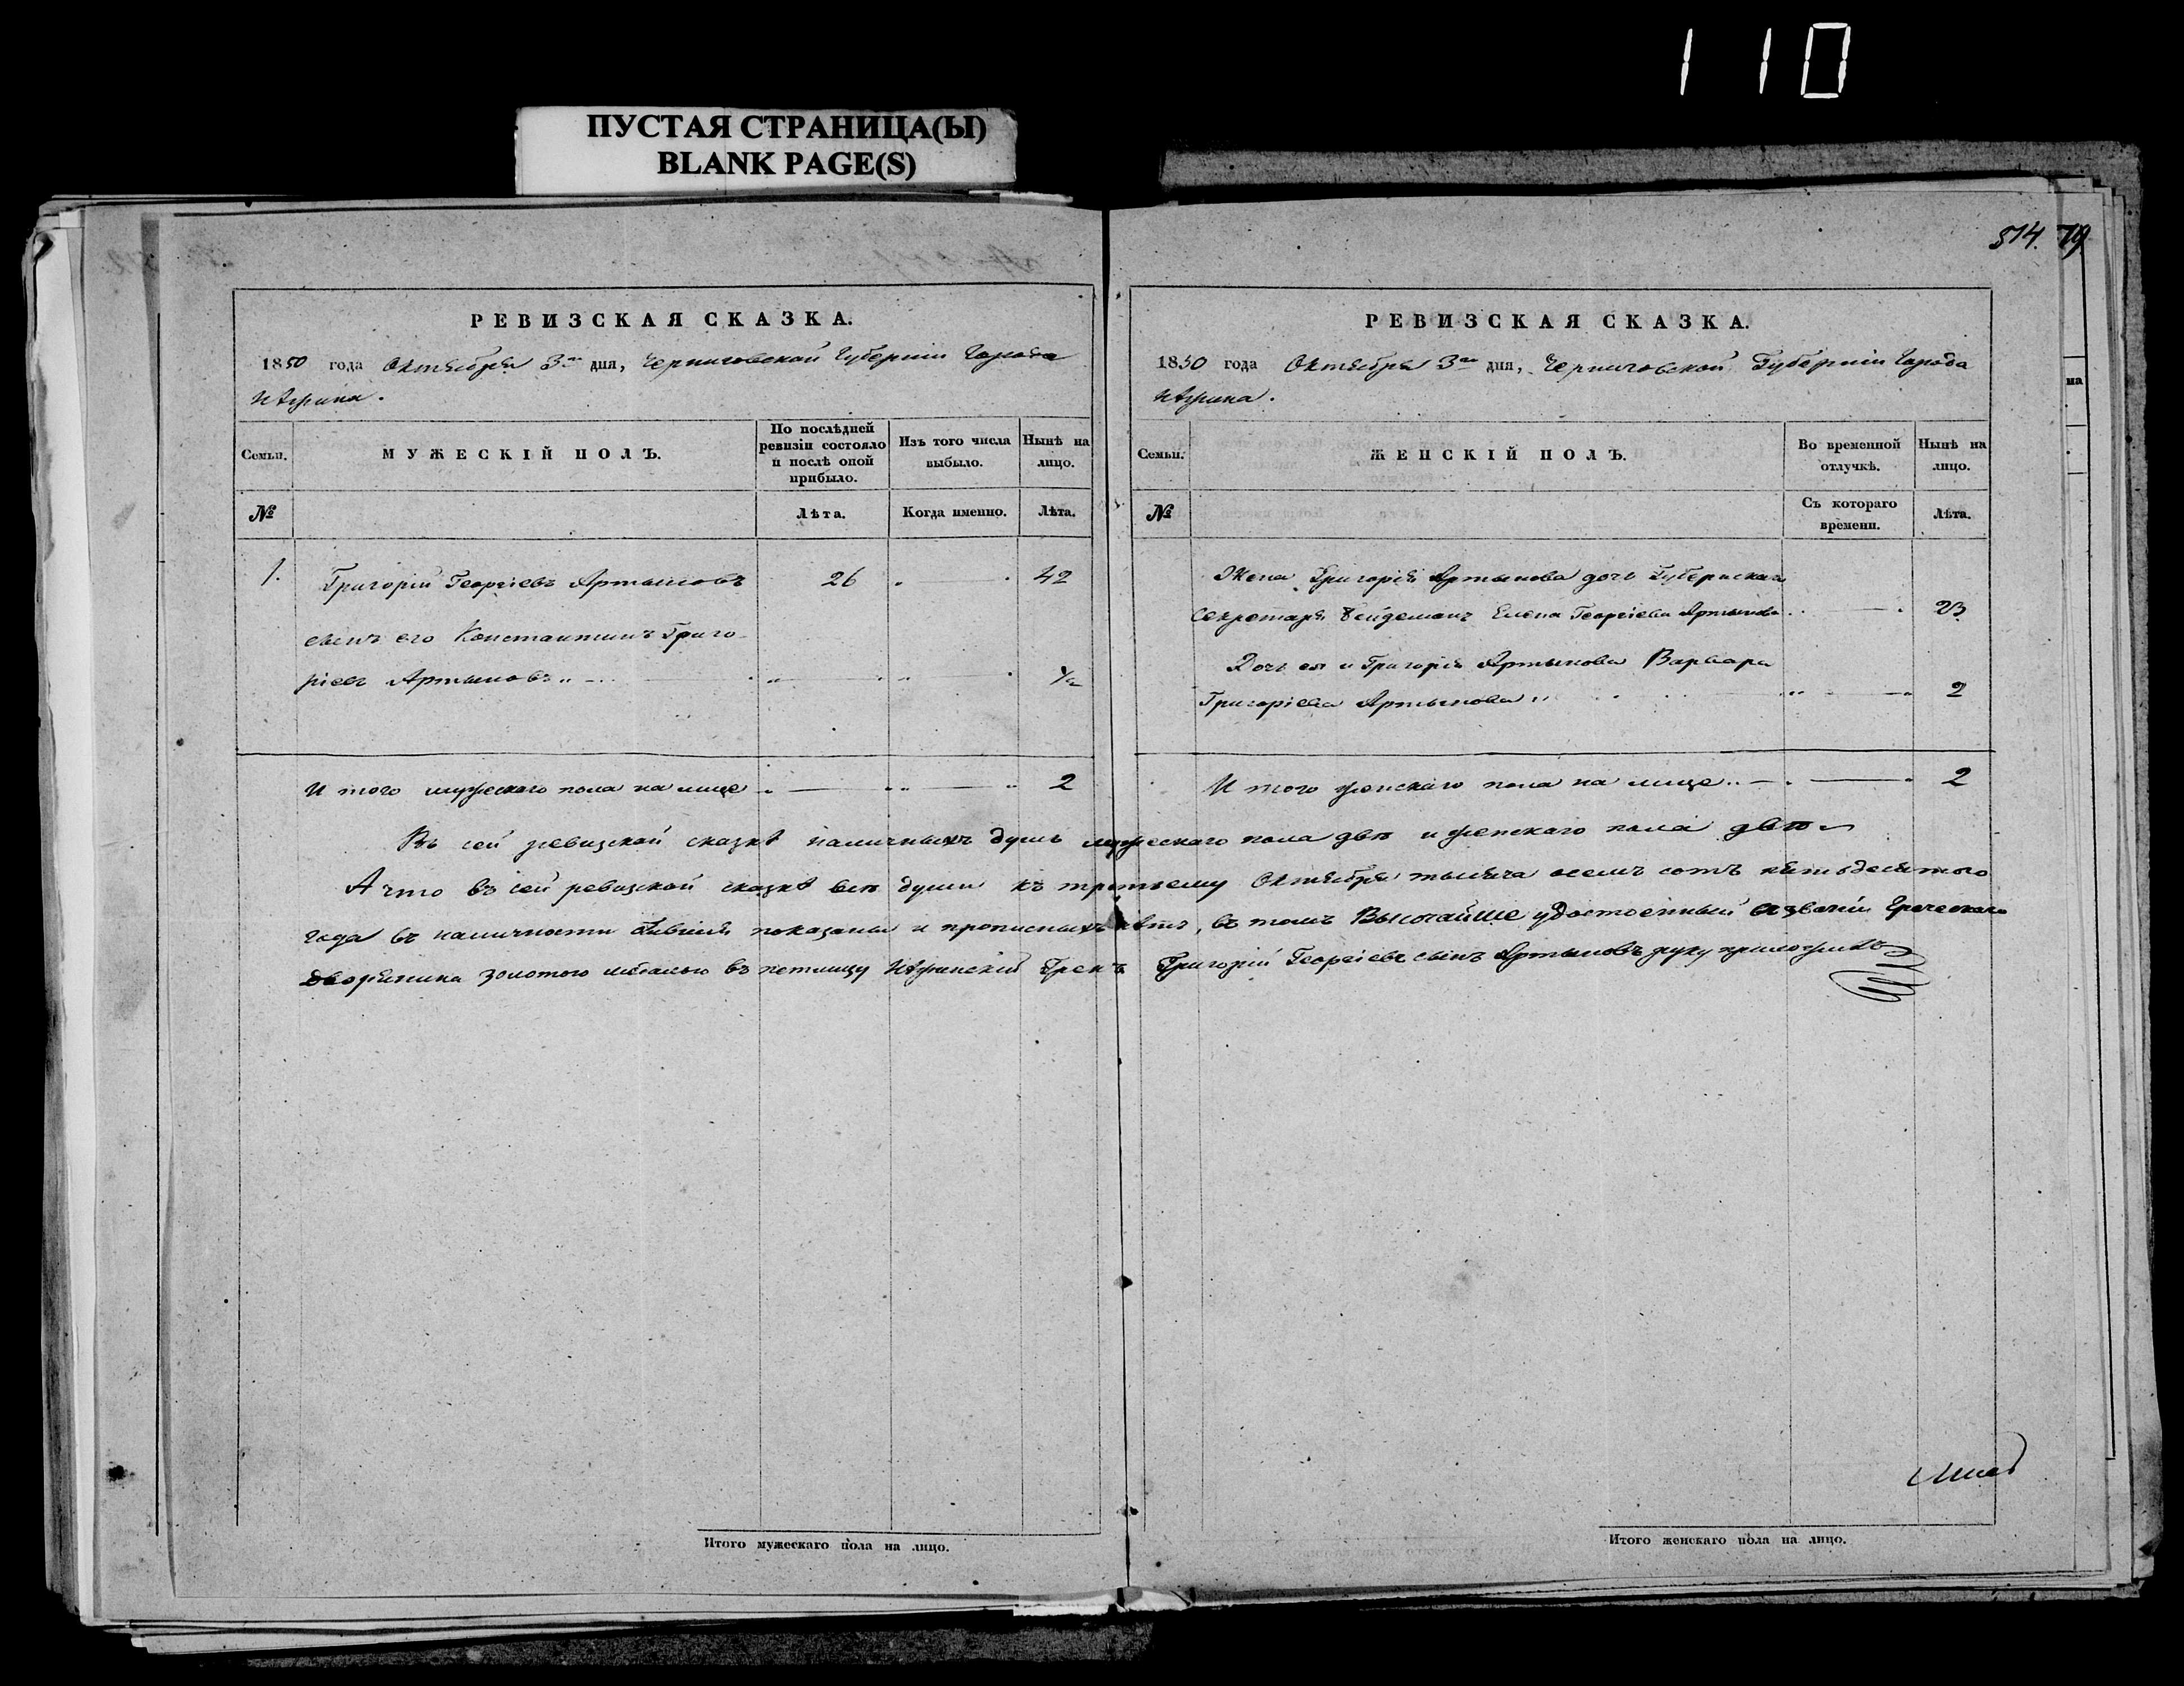 110
ПУСТАЯ СТРАНИЦА(Ы)
BLANK PAGE(S)
514. 79
РЕВИЗСКАЯ СКАЗКА.
1850 года Октября 3го дня, Черниговской Губернiи Города
Нѣжина.
Семьи.
МУЖЕСКIЙ ПОЛЪ.
По послѣдней ревизiи состояло и послѣ оной прибыло.
Изъ того числа выбыло.
Нынѣ на лицо.
№
Лѣта.
Когда именно.
Лѣта.
1. Григорiй Георгiевъ Артыновъ 26 42
сынъ его Константинъ Григо-
рiевъ Артыновъ 1/2
И того мужескаго пола на лице 2
РЕВИЗСКАЯ СКАЗКА.
1850 года Октября 3го дня, Черниговской Губернiи Города
Нѣжина.
Семьи.
ЖЕНСКIЙ ПОЛЪ.
Во временной отлучкѣ.
Нынѣ на лицо.
№
Съ котораго времени.
Лѣта.
Жена Григорiя Артынова дочь Губернскаго
Секретаря Елена Георгiева Артынова 23
Дочь ея и Григорiя Артынова Варвара
Григорiева Артынова 2
И того женскаго пола на лице 2
Въ сей ревизской сказкѣ наличныхъ душъ мужескаго пола двѣ и женскаго пола двѣ
А что въ сей ревизской сказкѣ всѣ души къ третьему Октября тысяча восемь сотъ пятьдесятого
года въ наличности бывшiя показаны и прописныхъ нѣтъ, въ томъ Высочайше удостоенный Греческаго
дворянина золотою медалью въ петлицу Нѣжинскiй Грекъ Григорiй Георгiевъ сынъ Артыновъ руку приложилъ
Итого мужескаго пола на лицо.
Итого женскаго пола на лицо.
на